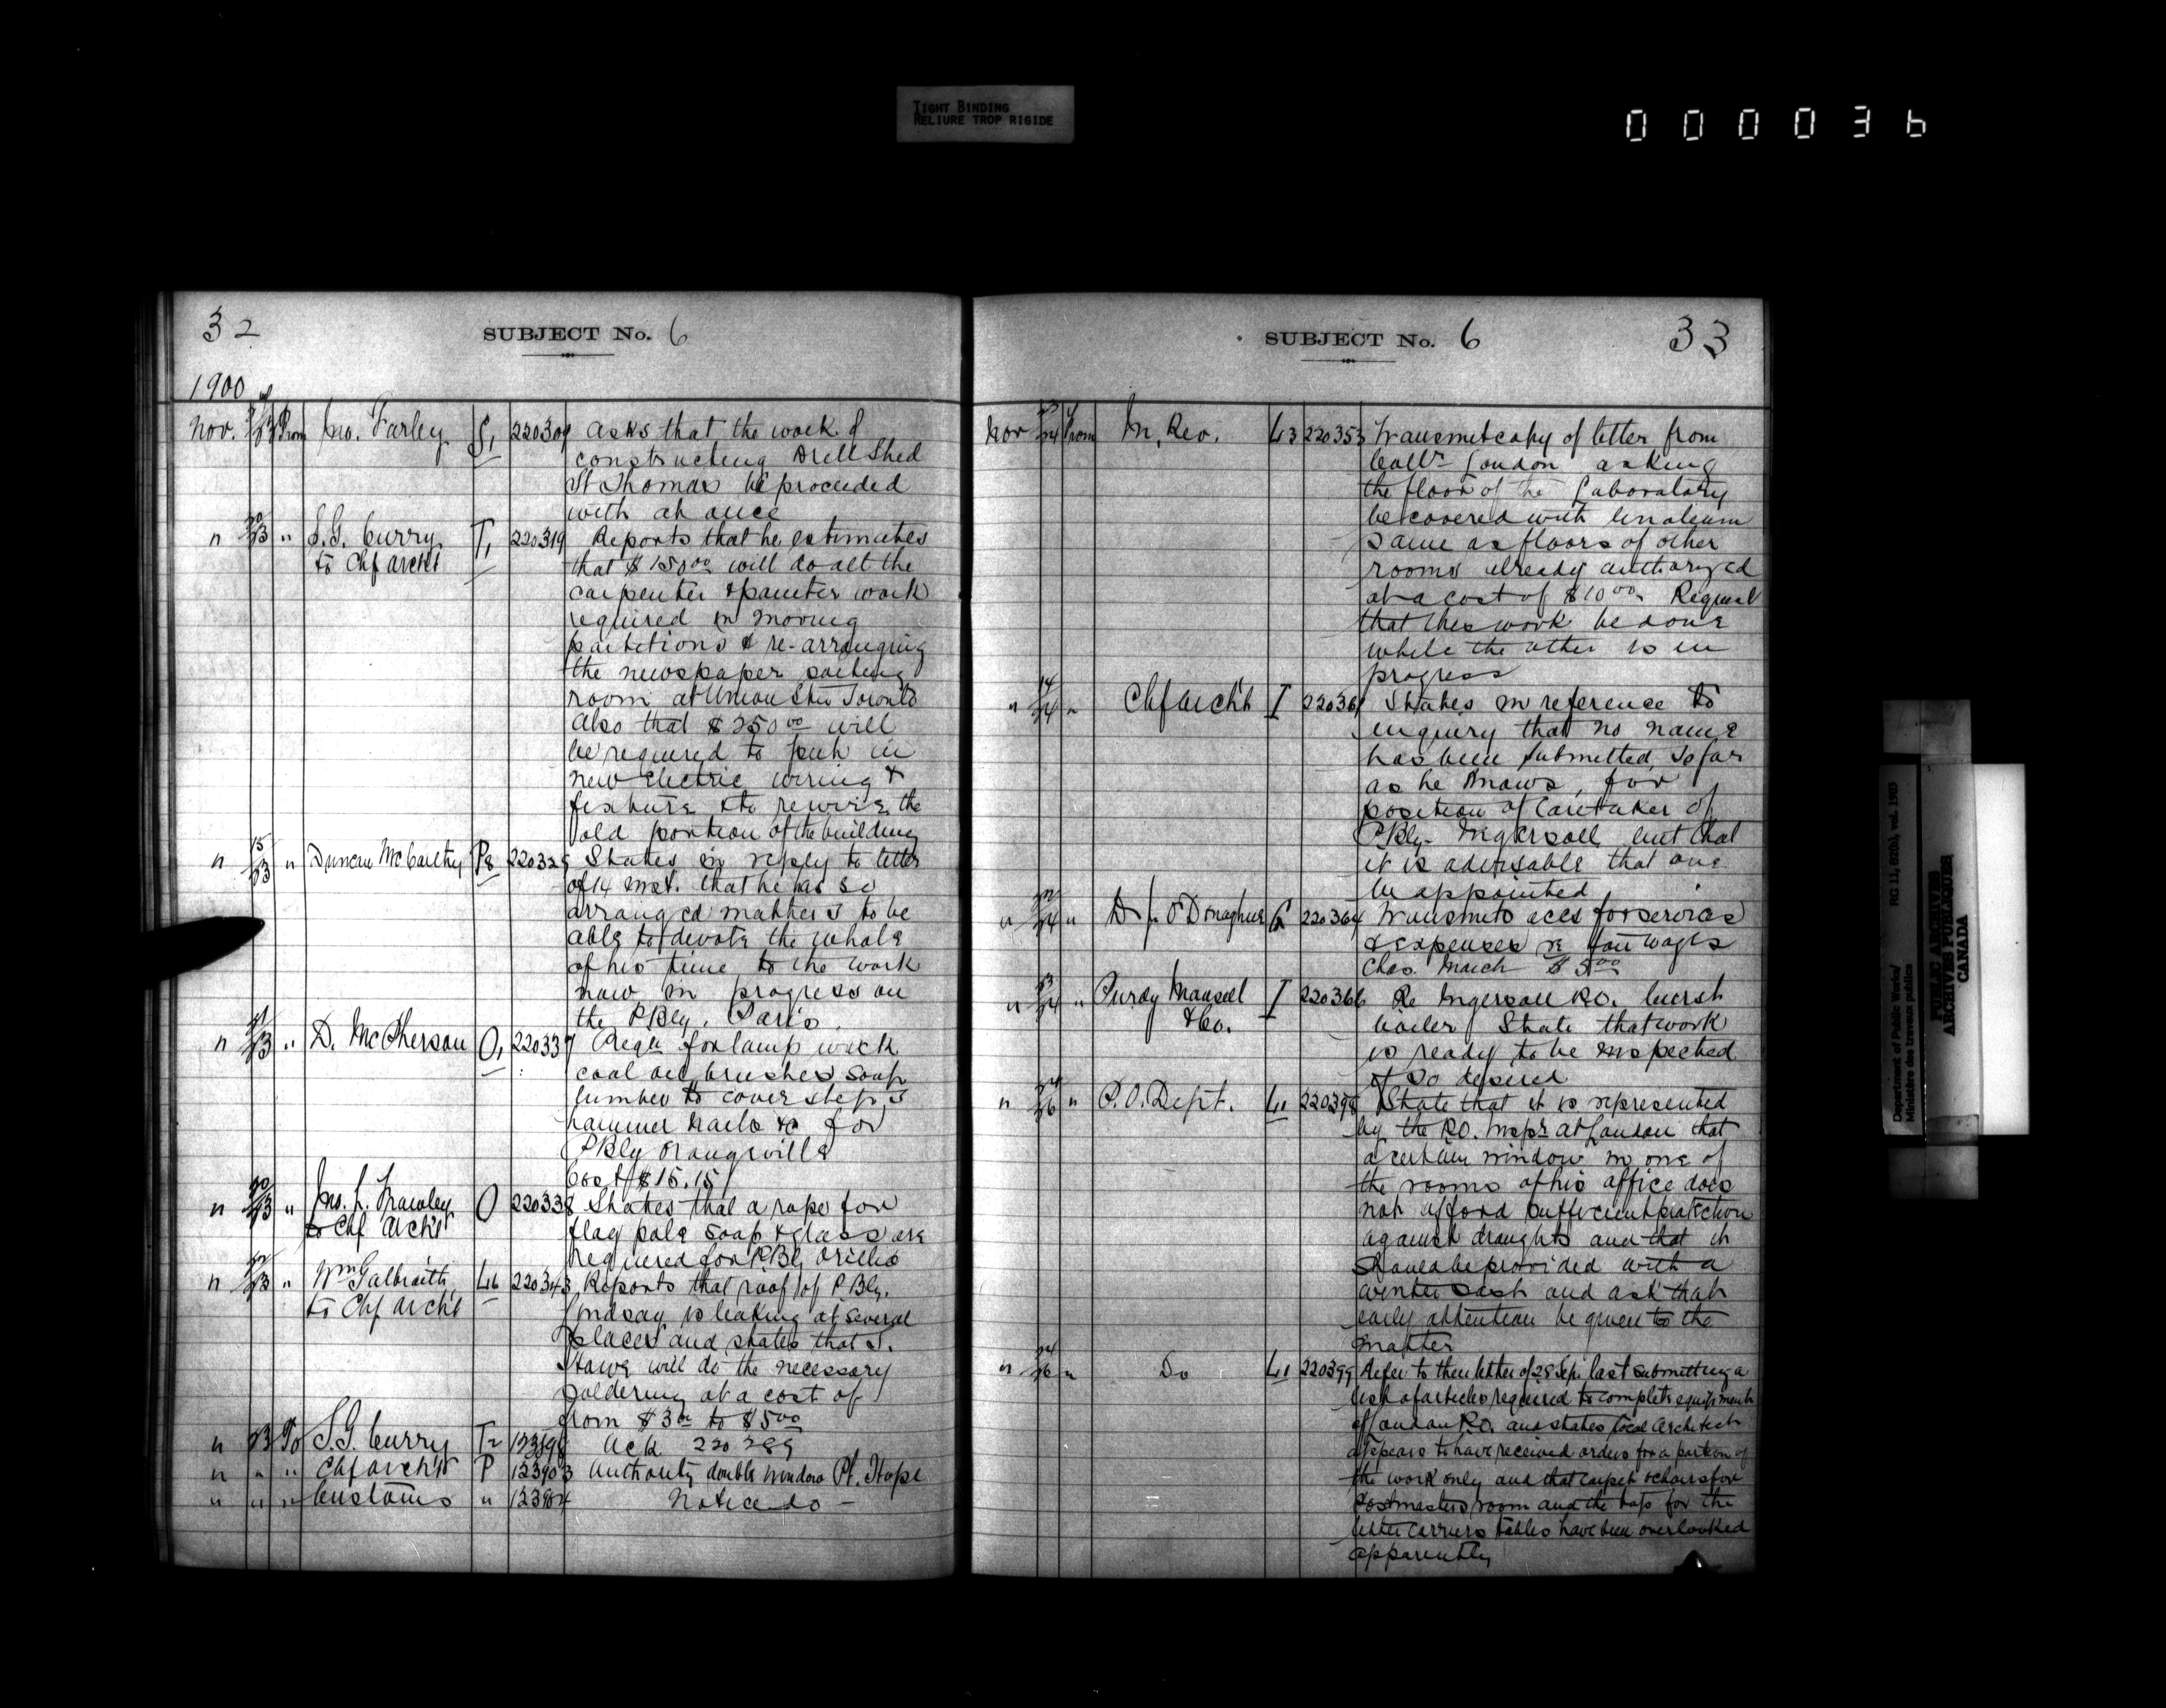 TIGHT BINDING
RELIURE TROP RIGIDE
000036
32
SUBJECT No. 6
1900
Nov. 23 From Jno. Farley S1 220309 Asks that the work of
constructing Drill Shed
St Thomas be proceeded
with at once
" 20/23 " S.G. Curry T1 220319 Reports that he estimates
to Chf Archt that $150.00 will do all the
carpenter & painter work
required in moving
partitions & re-arranging
the newspaper sorting
room at Union Stn Toronto
Also that $250.00 will
be required to put in
new electric wiring &
fixture & to rewire the
old portion of the building
" 15/23 " Duncan McCarthy P8 220325 States in reply to letter
of 14 inst. that he has so
arranged matters to be
able to devote the whole
of his time to the work
now in progress on
the P Bly. Paris.
" 21/23 " D. McPherson O1 220337 Reqn for lamp wick
coal oil brushes soap
lumber to cover steps
hammer nails &c for
P Bly Orangeville
Cost $15.15
" 20/23 " Jno. L. Frawley O 220338 States that a rope for
to Chf Archt flag pole soap & glass are
required for P Bly Orillia
" 22/23 " Wm Galbraith L16 220343 Reports that roof of P Bly.
to Chf Archt Lindsay is leaking at several
places and states that
will do the necessary
soldering at a cost of
from $3.00 to $5.00
" 23 To S.G. Curry T2 Ack 220289
" " " Chf Archt P 123903 Authority double windows Pt. Hope
" " " Customs " 123904 Notice do -
SUBJECT No. 6
33
Nov 23/24 From In. Rev. L3 220353 Transmit copy of letter from
Collr London asking
the floor of the Laboratory
be covered with linoleum
same as floors of other
rooms already authorized
at a cost of $10.00. Request
that this work be done
while the other is in
progress
" 14/24 " Chf Archt I 220361 States in reference to
enquiry that no name
has been submitted, so far
as he knows, for
position of Caretaker of
P Bly. Ingersoll but that
it is advisable that one
be appointed
" 22/24 " D. J. O'Donaghue G 220364 Transmits accs for services
& expenses re fair wages
Chas. March $5.00
" 23/24 " Purdy Mansell I 220366 Re Ingersoll P.O. burst
& Co. boiler State that work
is ready to be inspected
if so desired
" 24/26 " P.O. Dept. L1 220398 State that it is represented
by the P.O. Inspr at London that
a certain window in one of
the rooms of his office does
not afford sufficient protection
against draughts and that it
should be provided with a
winter sash and ask that
early attention be given to the
matter
" 24/26 " Do L1 220399 Refer to their letter of 28 Sep. last submitting a
list of articles required to complete equipment
of London P.O. and states local architect
appears to have received orders for a portion of
the work only and that carpet & chairs for
Postmasters room and the tops for the
letter carriers tables have been overlooked
apparently
Department of Public Works/ RG 11, B2(b), vol. 1903
Ministère des travaux publics
PUBLIC ARCHIVES
ARCHIVES PUBLIQUES
CANADA